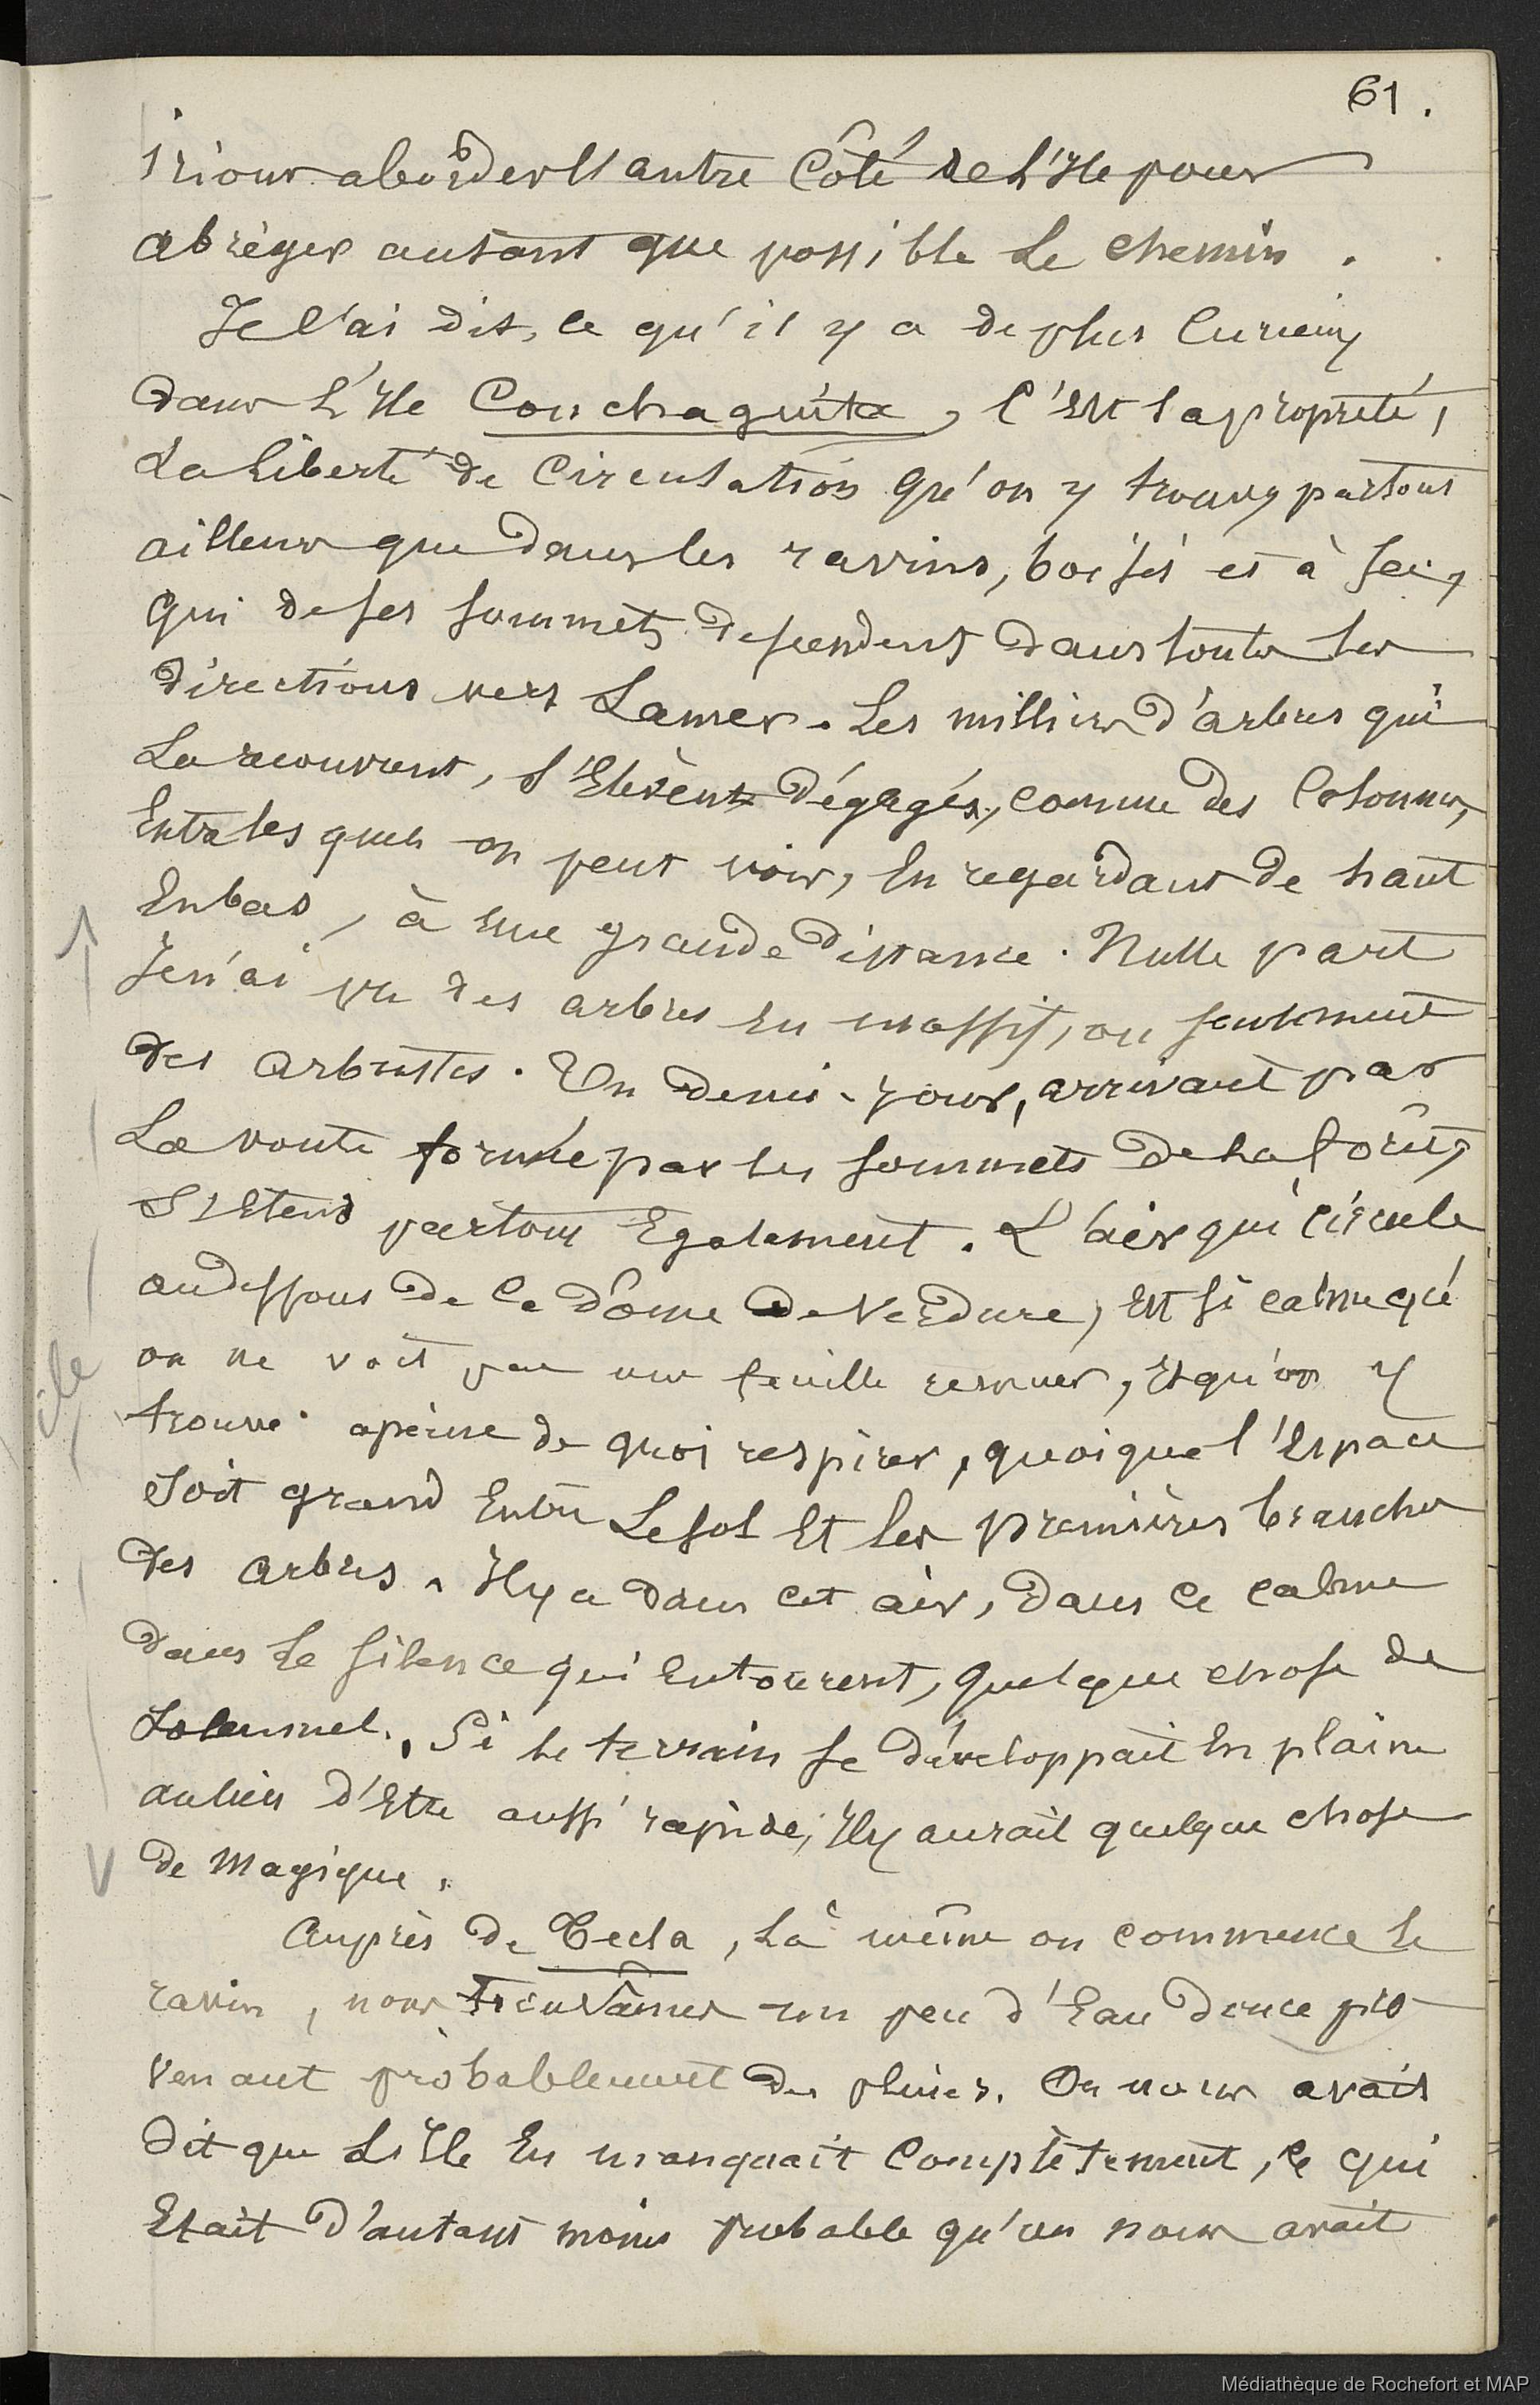 61.
irions aborder l'autre Côté de l'Ile pour
abréger autant que possible Le Chemin.
Je l'ai dit, ce qu'il y a de plus Curieux
dans L'Ile Conchaguita, C'Est la propreté,
La Liberté de Circulation qu'on y trouve partout
ailleurs que dans les ravins, boisés et à sec,
qui de ses sommets descendent dans toutes les
directions vers La mer. Les milliers d'arbres qui
La recouvrent, s'Elèvent dégagés, comme des Colonnes,
Entre lesquels on peut voir, En regardant de haut
En bas, à une grande distance. Nulle part
Je n'ai vu des arbres En massifs, ou seulement
des arbustes. Un demi-jour, arrivant par
La voute formée par les sommets de la forêt,
s'Etend partout Egalement. L'air qui circule
au dessous de Ce dôme de Verdure, Est si calme qu'
on ne voit pas une feuille remuer, Et qu'on y
trouve apeine de quoi respirer, quoique l'Espace
soit grand Entre Le sol Et les premières branches
des arbres. Il y a dans cet air, dans ce calme
dans Le silence qui Entourent, quelque chose de
solennel. Si le terrain se développait En plaine
au lieu d'Etre aussi rapide, Il y aurait quelque chose
de Magique.
île
Auprès de Tecla, Là même ou commence le
ravin, nous trouvâmes un peu d'Eau douce pro
venant probablement des pluies. On nous avait
dit que L'Ile En manquait Complètement, ce qui
Etait d'autant moins probable qu'on nous avait
Médiathèque de Rochefort et MAP